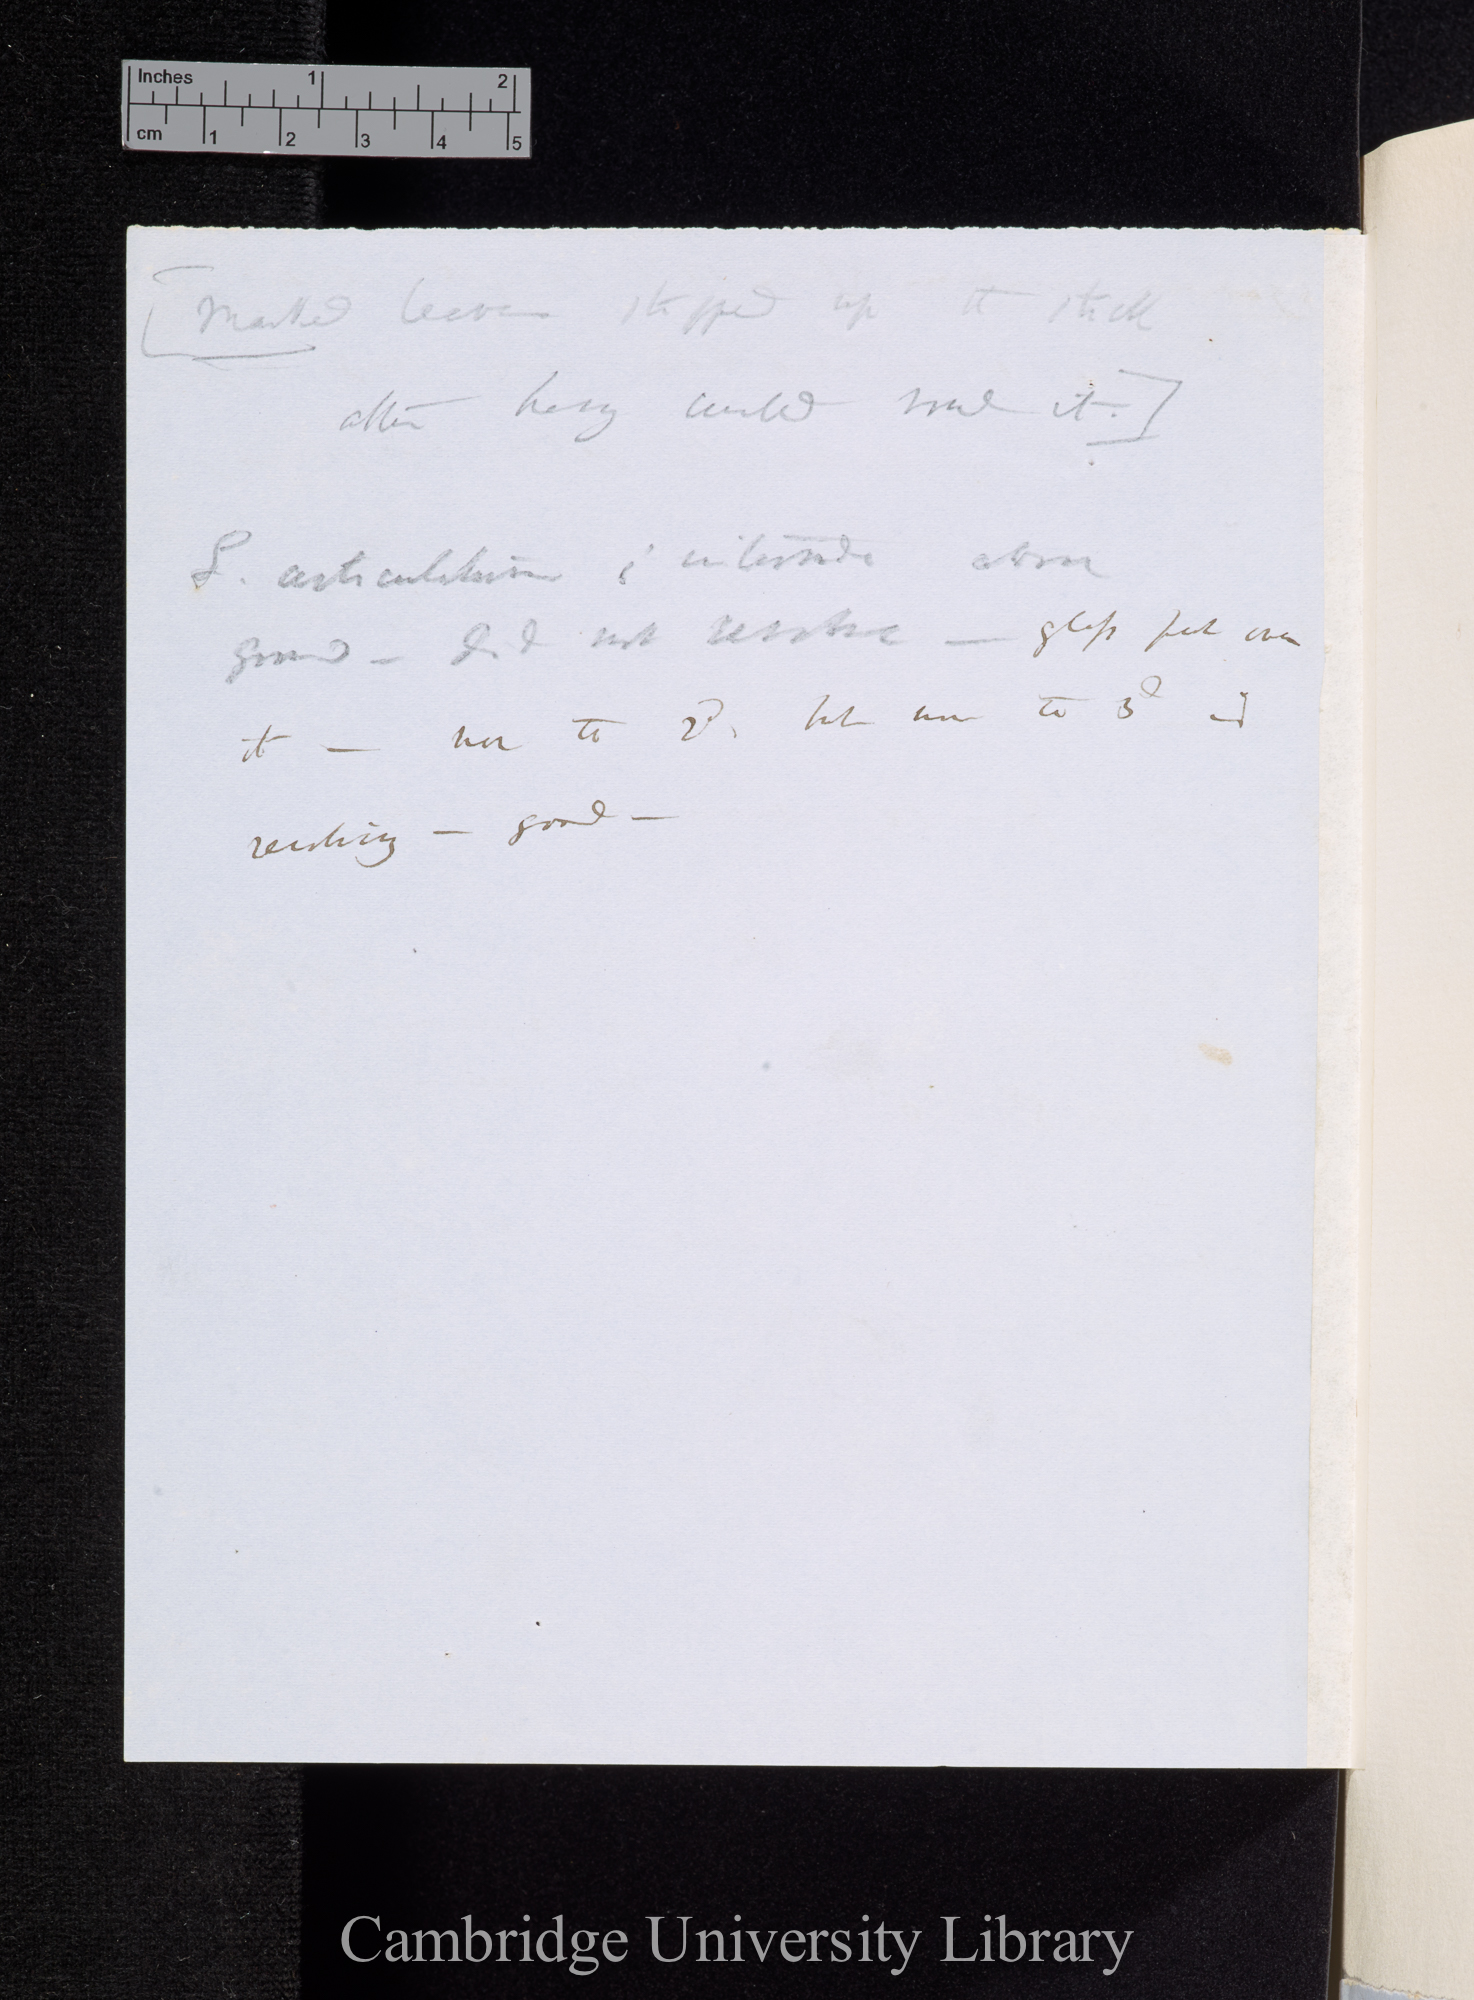 Inches 1 2
cm 1 2 3 4 5
[Marked leaves slipped up the stick
after having curled round it.]
S. articulatum ; internode above
ground — did not revolve — glass put over
it — nor to 2d. but now to 3d is
revolving — good —
Cambridge University Library